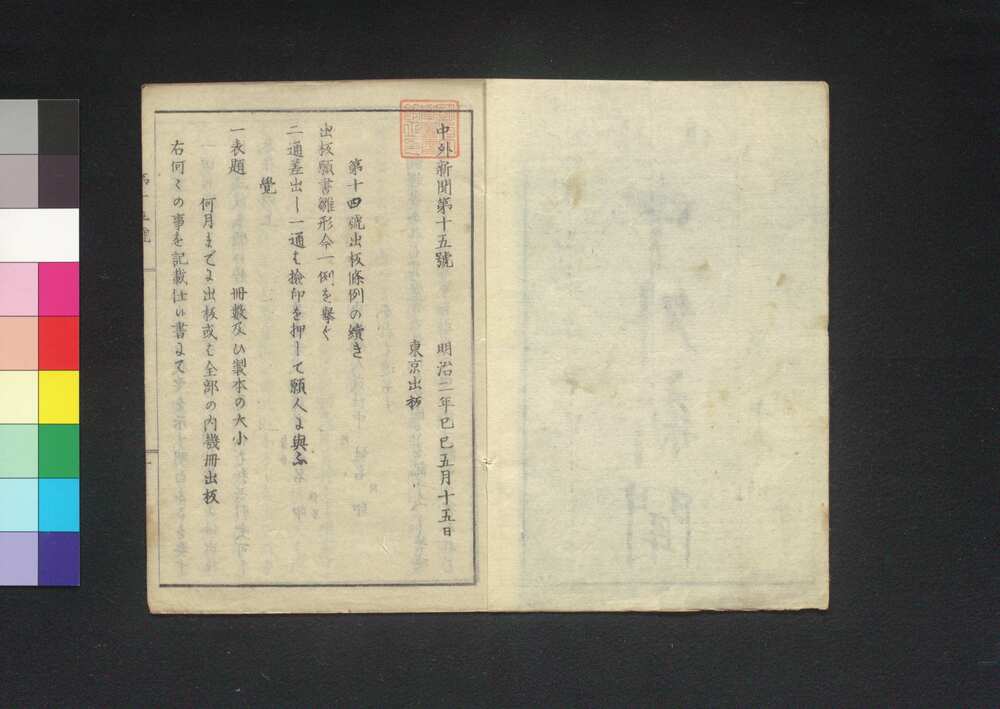 中外新聞第十五號　明治二年巳巳五月十五日
東京出板
第十四號出板條例の續き
出板願書雛形今一例を擧ぐ
二通差出し一通は撿印を押して願人に與ふ
覺
一表題　冊數及ひ製本の大小
何月までに出板或は全部の内幾冊出板
右何々の事を記載仕い書にて